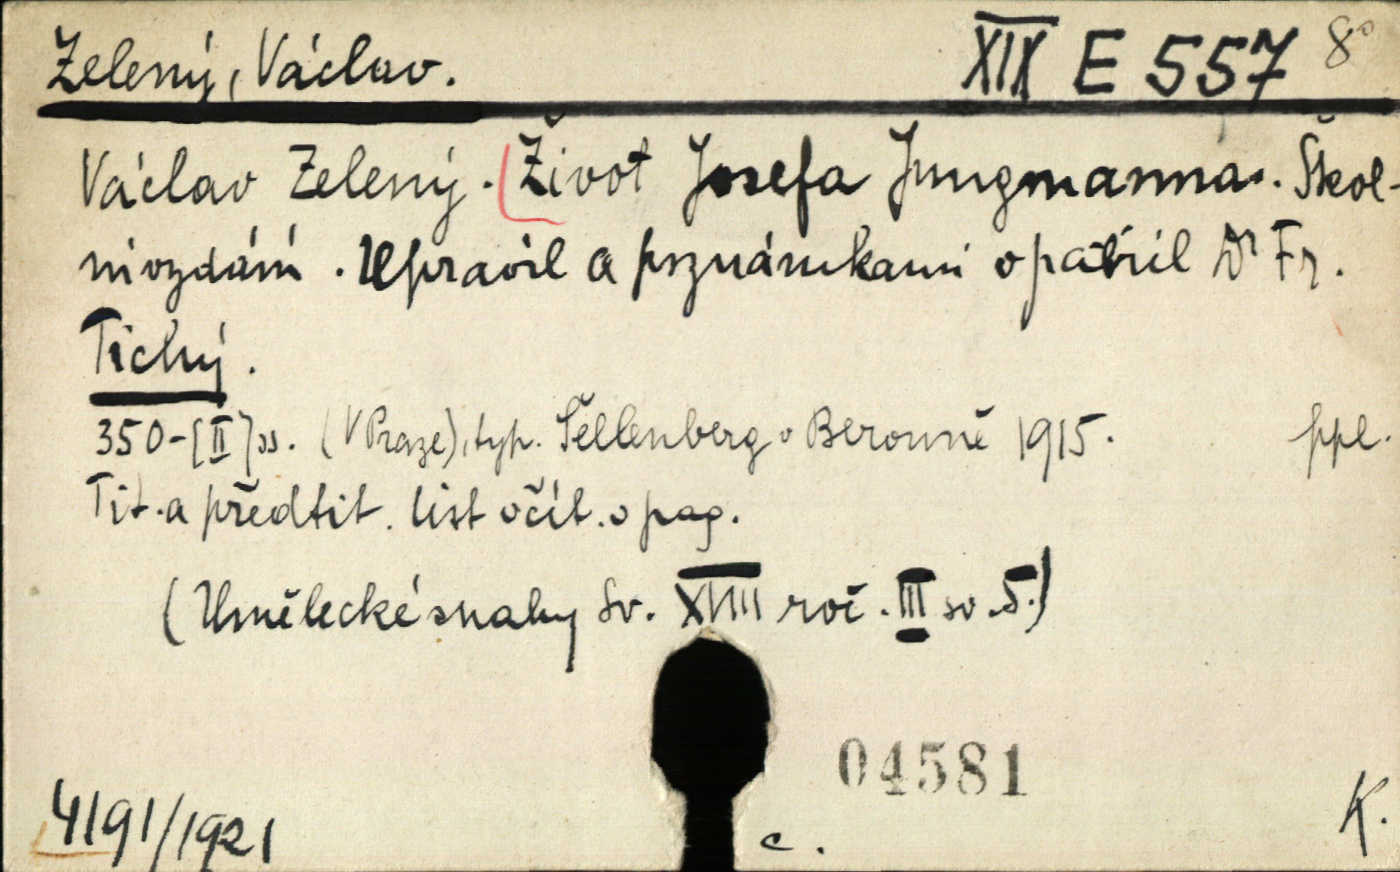 Zelený, Václav.
XIX E 557 8°
Václav Zelený. Život Josefa Jungmanna. Škol-
ní vydání. Upravil a poznámkami opatřil Dr Fr.
Tichý.
350-[II] ss. (V Praze), typ. Šellenberg v Berouně 1915. ppl.
Tit. a předtit. list včít. v pag.
(Umělecké snahy Sv. XVIII roč. III sv. 5.)
04581
4191/1921
c.
K.